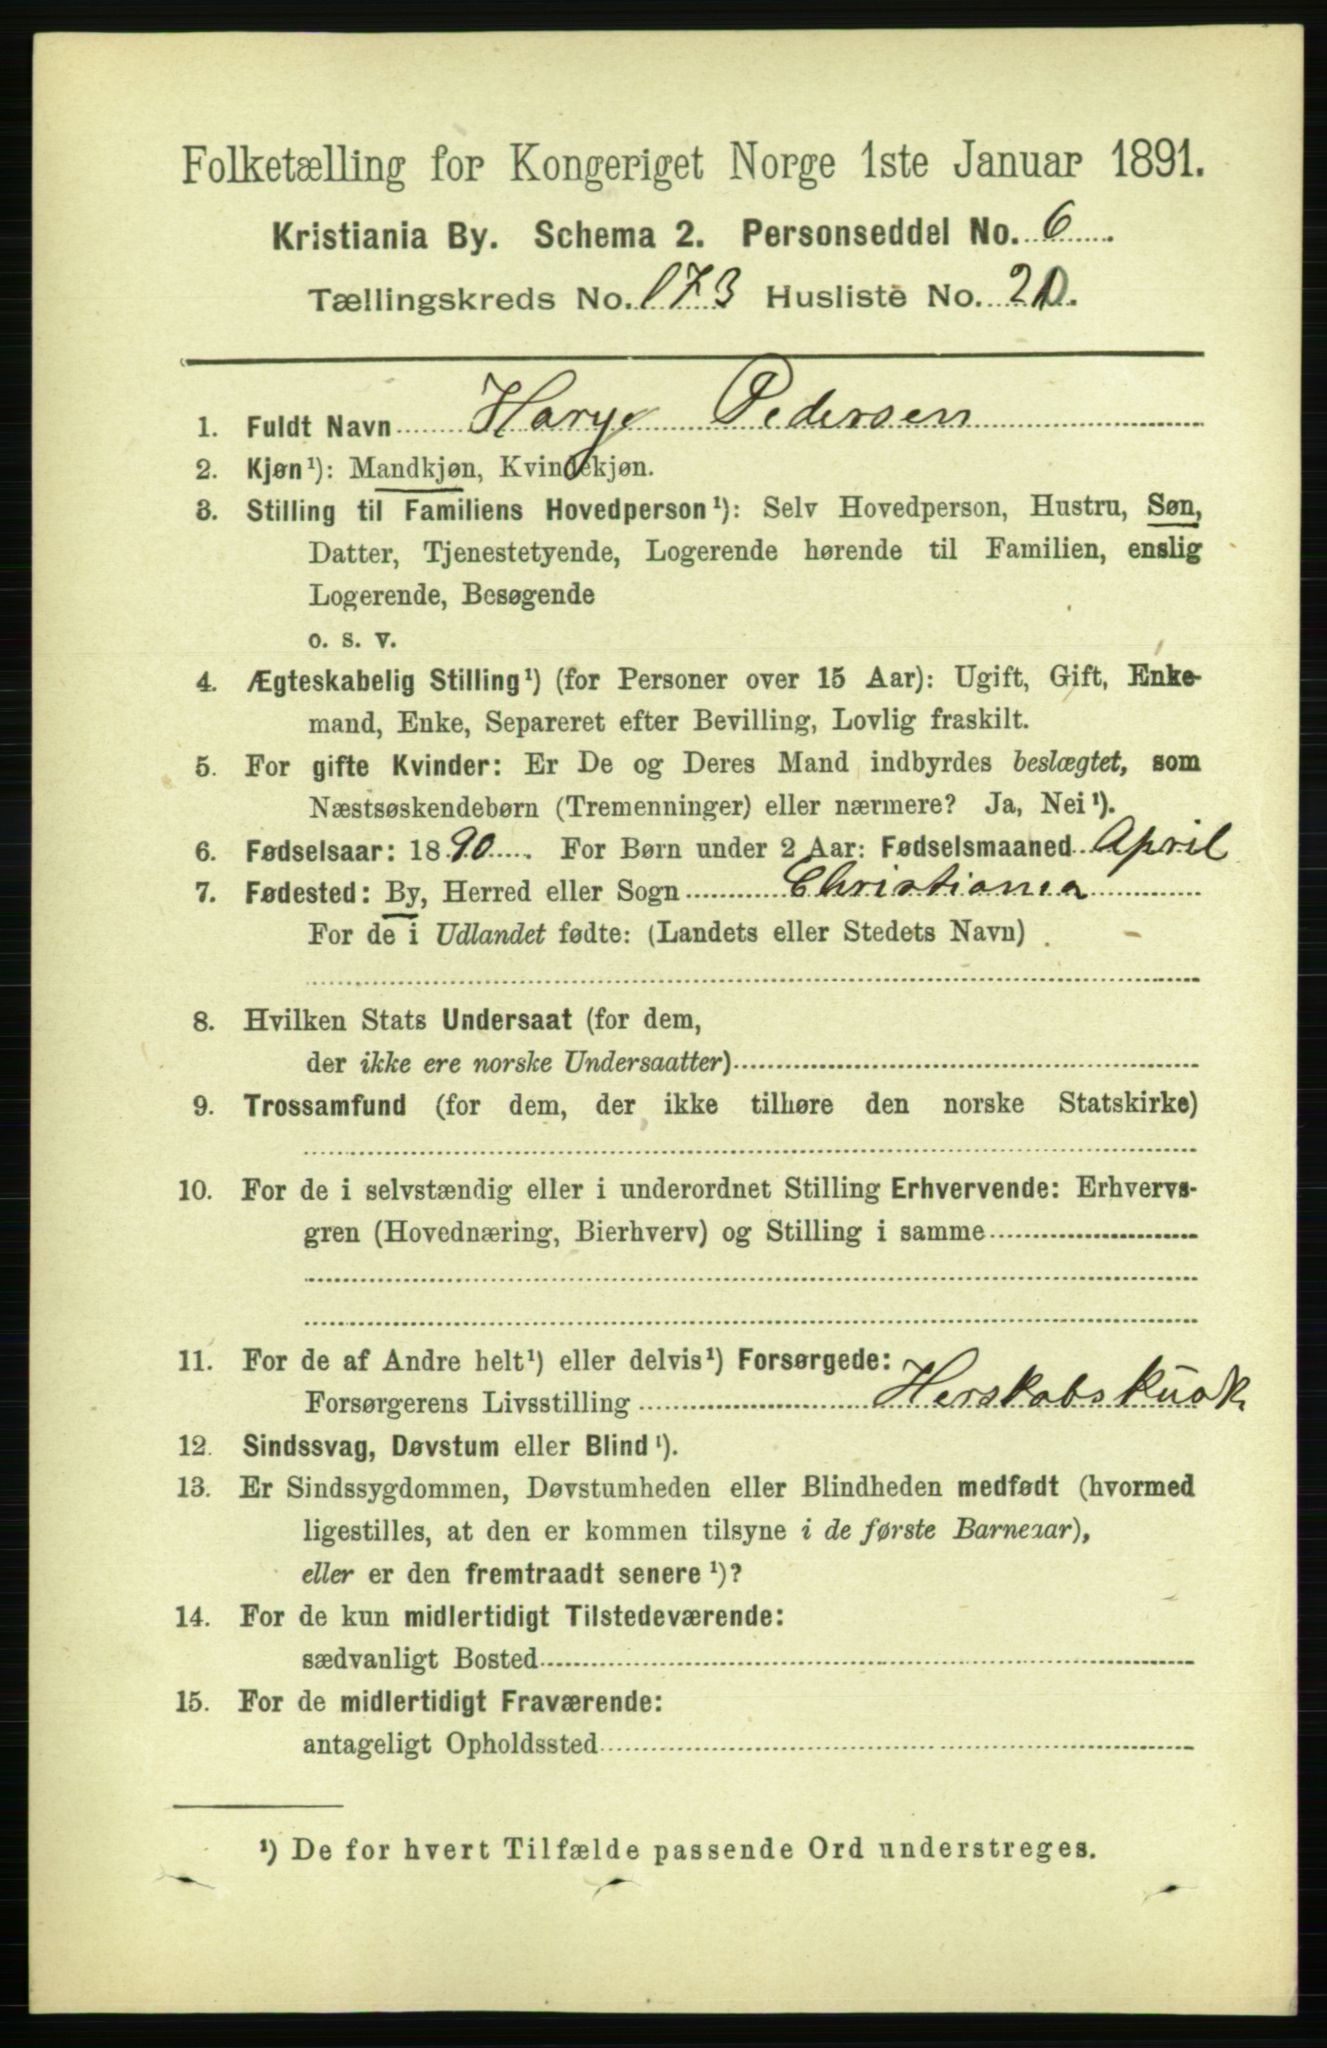 Folketælling for Kongeriget Norge 1ste Januar 1891.
Kristiania By. Schema 2. Personseddel No. 6
Tællingskreds No. 173 Husliste No. 20.
1. Fuldt Navn Harye Pedersen
2. Kjøn¹): Mandkjøn, Kvindekjøn.
3. Stilling til Familiens Hovedperson¹): Selv Hovedperson, Hustru, Søn,
Datter, Tjenestetyende, Logerende hørende til Familien, enslig
Logerende, Besøgende
o. s. v.
4. Ægteskabelig Stilling¹) (for Personer over 15 Aar): Ugift, Gift, Enke-
mand, Enke, Separeret efter Bevilling, Lovlig fraskilt.
5. For gifte Kvinder: Er De og Deres Mand indbyrdes beslægtet, som
Næstsøskendebørn (Tremenninger) eller nærmere? Ja, Nei¹).
6. Fødselsaar: 1890. For Børn under 2 Aar: Fødselsmaaned April
7. Fødested: By, Herred eller Sogn Christiania
For de i Udlandet fødte: (Landets eller Stedets Navn)
8. Hvilken Stats Undersaat (for dem,
der ikke ere norske Undersaatter)
9. Trossamfund (for dem, der ikke tilhøre den norske Statskirke)
10. For de i selvstændig eller i underordnet Stilling Erhvervende: Erhvervs-
gren (Hovednæring, Bierhverv) og Stilling i samme
11. For de af Andre helt¹) eller delvis¹) Forsørgede:
Forsørgerens Livsstilling Herskabskusk
12. Sindssvag, Døvstum eller Blind¹).
13. Er Sindssygdommen, Døvstumheden eller Blindheden medfødt (hvormed
ligestilles, at den er kommen tilsyne i de første Barneaar),
eller er den fremtraadt senere¹)?
14. For de kun midlertidigt Tilstedeværende:
sædvanligt Bosted
15. For de midlertidigt Fraværende:
antageligt Opholdssted
¹) De for hvert Tilfælde passende Ord understreges.